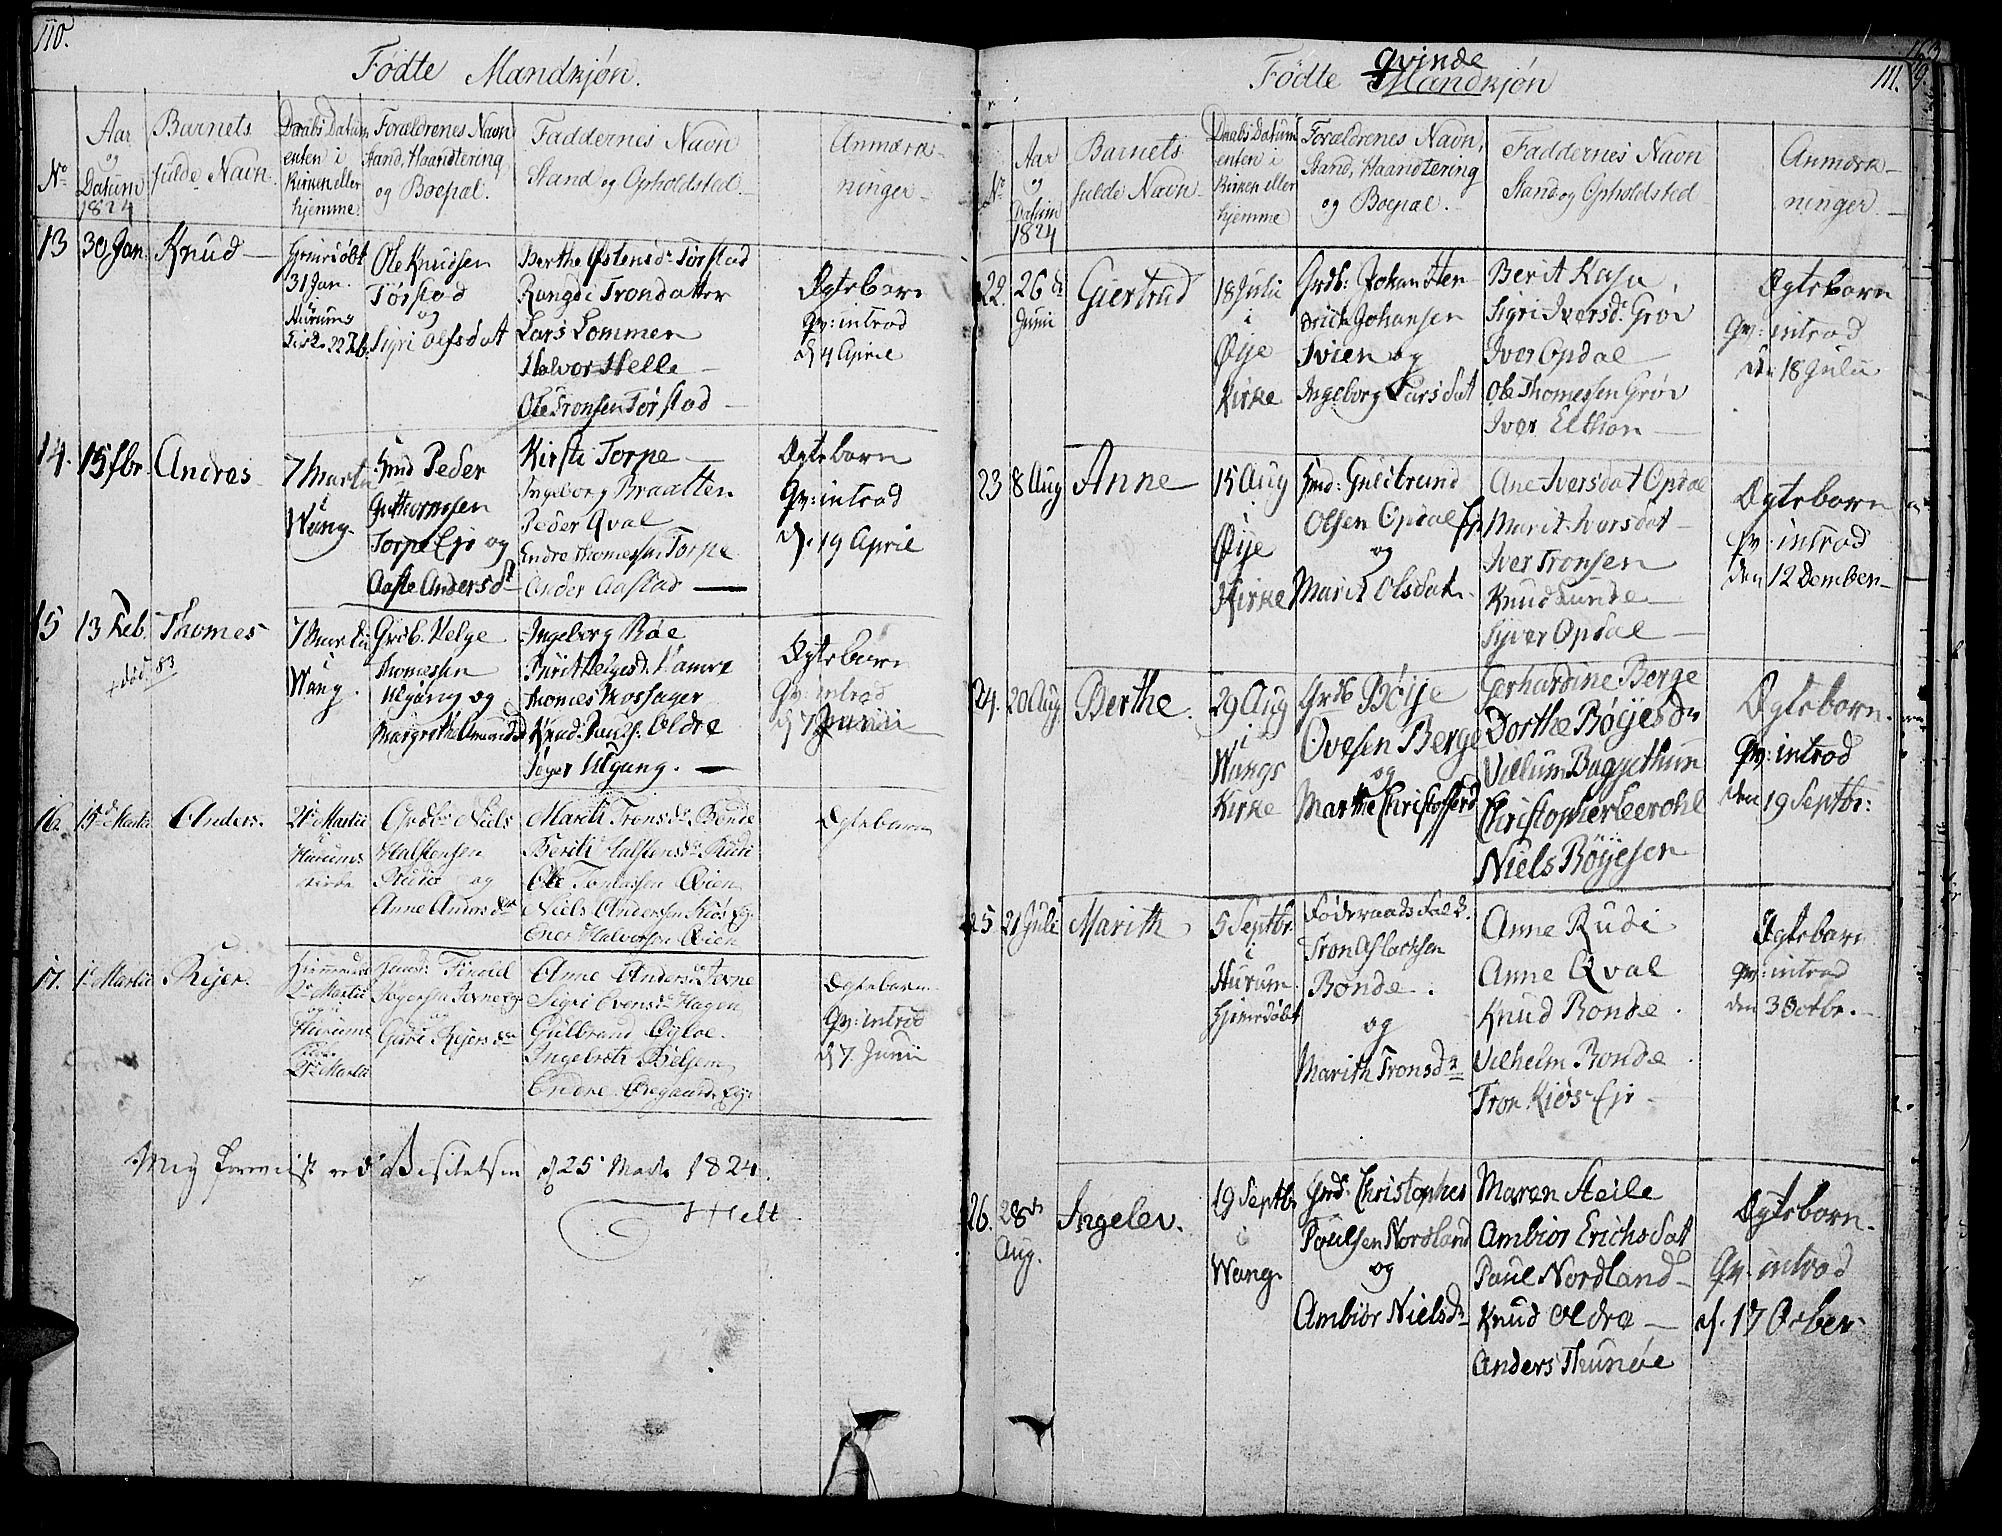 110.
Fødte Mandkjøn.
No
Aar
og
Datum
1824
Barnets
fulde Navn
Daabs Datum
enten i
Kirken eller
hjemme
Forældrenes Navn
Stand, Haandtering
og Boepæl.
Faddernes Navn
Stand og Opholdsted
Anmærk-
ninger
13
30 Jan
Knud
Hjemdøbt
31 Jan.
Hurums
Ole Knudsen
Tørstad
og
Sigri Olfsdat
Berthe Østensdr Tørstad
Rangdi Trondatter
Lars Lommen
Halvor Helle
Ole Tronsen Tørstad
Ægtebarn
Qv: introd
d 4 April
14.
15 fbr
Andras
7 Martii
i
Wang
Hmd Peder
Guttormsen
Torpe Eje og
Aaste Andersd
Kirsti Torpe
Ingeborg Braatten
Peder Qval
Endre Thomessen Torpe
Ander Aastad
Ægtebarn
Qv: introd
d. 19 April
15
13 Feb.
+ død 83
Thomes
7 Martii
i
Wang.
Grdb. Helge
Thomessen
Utgang og
Margrethe Amundsd
Ingeborg Røe
Thomes Mossager
Knud Pauls. Oldre
Utgang.
Ægtebarn
Qv: introd
d 7 Junii
16.
15d Martii
Anders.
21d Martii
i
Hurums
Kirke
Grdbr Niels
Halstensen
Rudie og
Anne Andersdtr
Marith Tronsdr Bonde
Berith Halstensdr Rudi
Ole Tomassen Øvien
Niels Andersen Kiøs Eje
Ener Halvorsen Øvien
Ægtebarn
17.
1d Martii
Rejer.
Hjemmedøbt
2d Martii
og i
Hurums
Kirke
21d Martii
og
Guri Rejersdtr
Anne Andersdr Jorne
Sigri Evensdr Hagen
Gulbrand Øyloe.
Ingebreth Belsem
Endre Øregaard Eje
Ægtebarn
Qv: introd
d 7 Junii
d 25 1824.
Helt
111.
Fødte qvinde Mandkjøn
No
Aar
og
Datum
1824
Barnets
fulde Navn
Daabs Datum
enten i
Kirken eller
hjemme
Forældrenes Navn,
Stand, Haandtering
og Boepæl.
Faddernes Navn
Stand og Opholdsted
Anmærk-
ninger
22.
26d
Junii
Giertrud
18 Julii
i
Øije
Kirke
Grdb: Johan Sten
Erich Johansen
Ivien og
Ingeborg Larsdat
Berit Kasa,
Sigri Iversdr Grøv
Iver Opdal
Ole Thomessen Grøv
Iver Elthon
Ægtebarn
Qv: introd
den 18 Julii
23
8 Aug
Anne
15 Aug
i
Øije
Kirke
Hmd: Guldbrand
Olsen Opdal Ejr
og
Marit Olsdat.
Ane Iversdat Opdal
Marit Iversdat
Iver Tronsen
Knud Lunde
Syver Opdal
Ægtebarn
Qv: introd
den 12 Dember
24.
20 Aug.
Berthe.
29 Aug
i
Wangs
Kirke
Grdb Bøije
Ovesen Berge
og
Marthe Christofferd
Gerhardine Berge
Dorthe Bøijesdr
Villum Baggethun
Christopher Leerohl
Niels Bøijesen
Ægtebarn.
Qv: introd
den 19 Septbr:
25.
21 Juli
Marith
5 Septbr
i
Hurum.
Hjemdøbt
Føderaads Folk.
Tron Aslacksen
Bonde.
og
Marith Tronsdr
Anne Rudi
Anne Qval
Knud Bonde.
Vilhelm Bonde
Tron Kiøs Eje
Ægtebarn
Qv: introd
den 3 Octbr.
26.
28d
Aug.
Ingelev.
19 Septbr
i
Wang.
Grdb: Christopher
Paulsen Nordland
og
Ambiør Nielsdr
Maren Heile
Ambiør Erichsdat
Paul Nordland
Knud Oldre
Anders Thunøe
Ægtebarn.
Qv: introd
d. 17 Octber